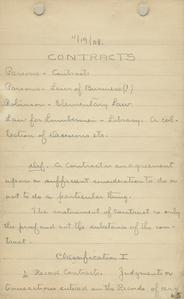 11/19/08.
CONTRACTS
Parsons - Contracts
Parsons - Laws of Business (?)
Robinson - Elementary Law.
Law for Lumbermen - Library. A col-
lection of decisions etc.
def. A Contract is an agreement
upon a sufficient consideration to do or
not to do a particular thing.
The instrument of contract is only
the proof and not the substance of the con-
tract.
Classification I
Record Contracts. Judgments or
transactions entered on the Records of any